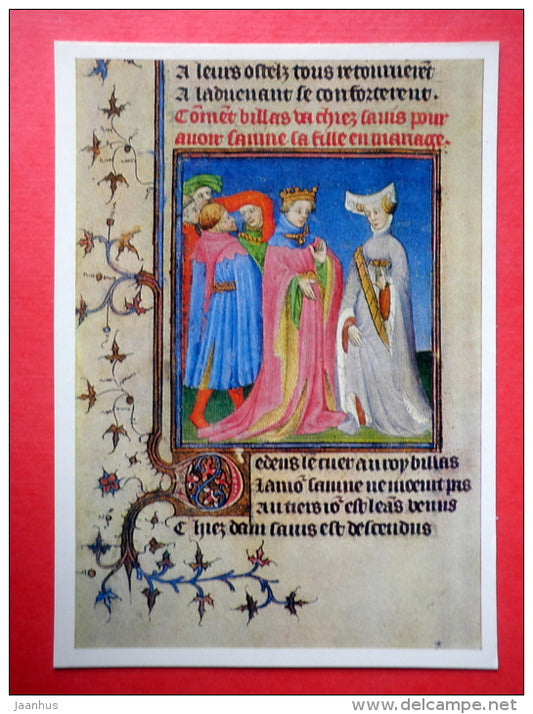 A leurs ostelz tous retournerēt
A laduenant se conforterent.
Cōmēt billas va chiez sauis pour
auoir sauine sa fille en mariage.
Dedens le cuer au roy billas
Lamoʳ sauine ne vient pas
Au tiers ioʳ est leās venus
Chiez dam sauis est descendus
jaanhus
www.delcampe.net